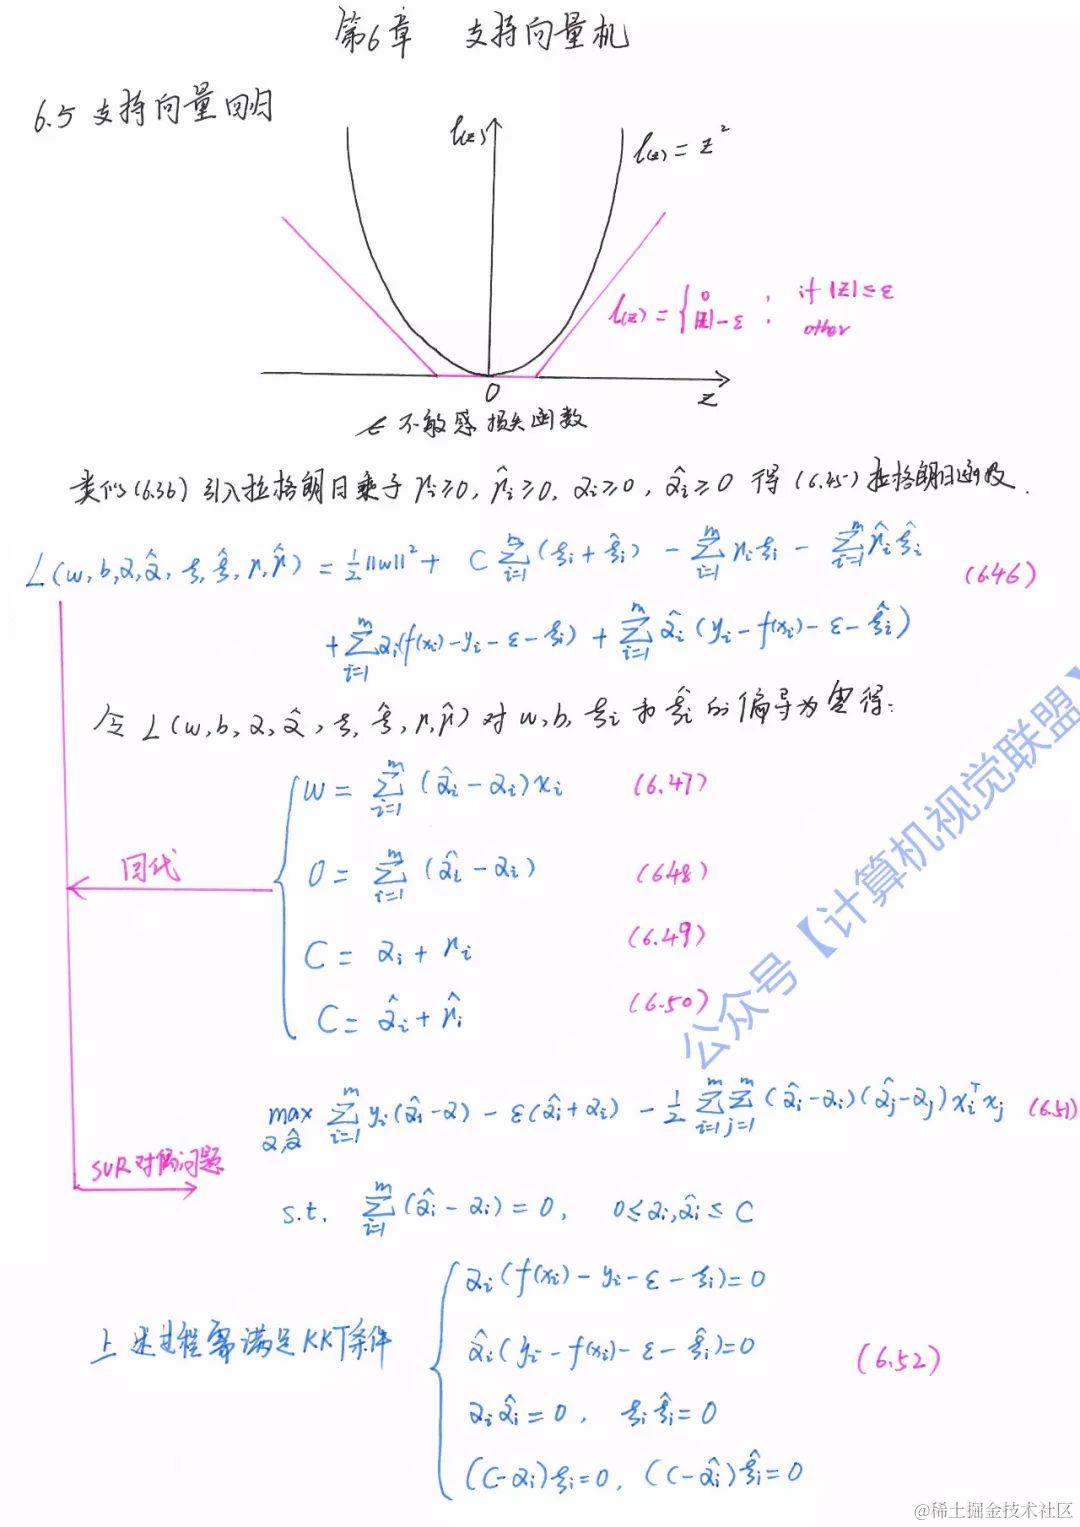 第6章 支持向量机
6.5 支持向量回归
l(z)
l(z) = z²
l(z) = { 0 ; if |z| ≤ ε
|z| - ε ; other
0
z
ε 不敏感损失函数
类似(6.36)引入拉格朗日乘子 μi≥0, μ̂i≥0, αi≥0, α̂i≥0 得 (6.45) 拉格朗日函数.
L(w,b,α,α̂,ξ,ξ̂,μ,μ̂) = ½||w||² + C Σ_{i=1}^{m} (ξi + ξ̂i) - Σ_{i=1}^{m} μiξi - Σ_{i=1}^{m} μ̂iξ̂i (6.46)
+ Σ_{i=1}^{m} αi(f(xi) - yi - ε - ξi) + Σ_{i=1}^{m} α̂i(yi - f(xi) - ε - ξ̂i)
令 L(w,b,α,α̂,ξ,ξ̂,μ,μ̂) 对 w,b,ξi 和 ξ̂i 的偏导为零得:
w = Σ_{i=1}^{m} (α̂i - αi)xi (6.47)
回代
0 = Σ_{i=1}^{m} (α̂i - αi) (6.48)
C = αi + μi (6.49)
C = α̂i + μ̂i (6.50)
max_{α,α̂} Σ_{i=1}^{m} yi(α̂i - α) - ε(α̂i + αi) - ½ Σ_{i=1}^{m} Σ_{j=1}^{m} (α̂i - αi)(α̂j - αj) xi^T xj (6.51)
SVR对偶问题
s.t. Σ_{i=1}^{m} (α̂i - αi) = 0, 0 ≤ αi, α̂i ≤ C
αi(f(xi) - yi - ε - ξi) = 0
上述过程需满足KKT条件
α̂i(yi - f(xi) - ε - ξ̂i) = 0 (6.52)
αiα̂i = 0, ξiξ̂i = 0
(C - αi)ξi = 0, (C - α̂i)ξ̂i = 0
公众号【计算机视觉联盟】
@稀土掘金技术社区